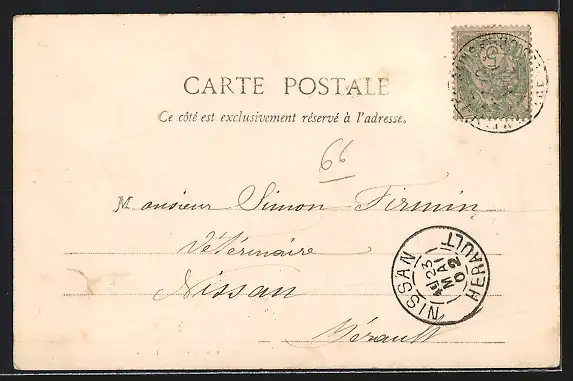 CARTE POSTALE
Ce côté est exclusivement réservé à l'adresse.
66
Monsieur Simon Firmin
Vétérinaire
Nissan
Hérault
NISSAN
23
MAI
02
HERAULT